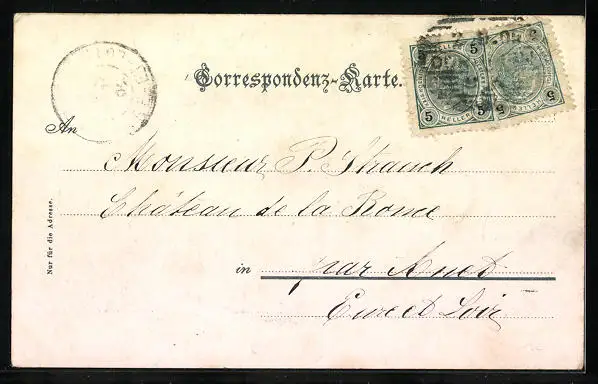 Correspondenz-Karte.
5 HELLER 5
5 HELLER 5
An
Monsieur P. Strauch
Château de la Rome
Nur für die Adresse.
in par Anet
Eure et Loir